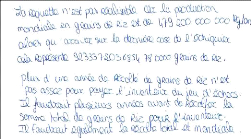 La requette n'est pas réalisable car la production
mondiale en grains de riz est de 479 200 000 000 kg/an
alors qu'au sur la dernière case de l'échiquier
cela représente 92233720368547 75 000 grains de riz.
Plus d'une année de récolte de grains de riz n'est
pas assez pour payer l'inventeur du jeu d'échecs.
Il faudrait plusieurs années avant de
somme totale de grains de riz pour l'inventeur.
Il faudrait également la récolte totale et mondiale